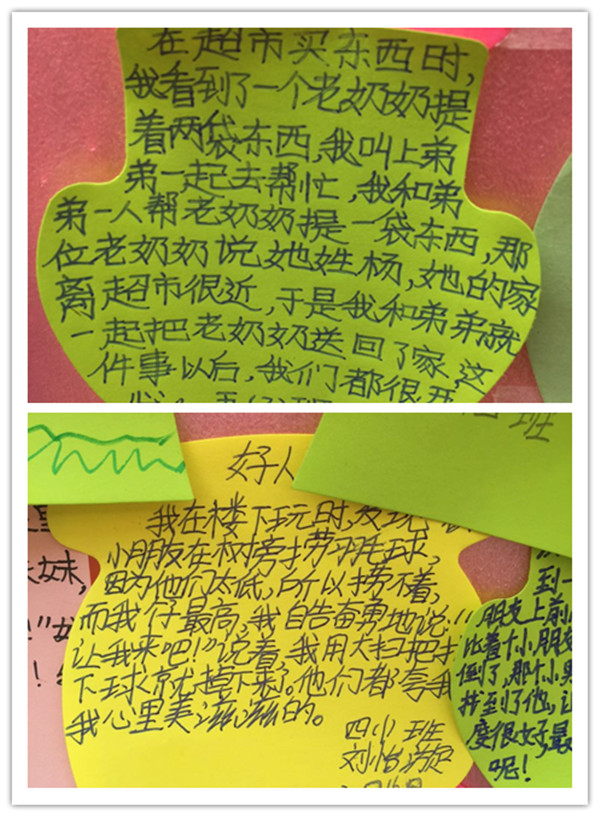 在超市买东西时,
我看到了一个老奶奶提
着两袋东西,我叫上弟
弟一起去帮忙,我和弟
弟一人帮老奶奶提一袋东西,那
位老奶奶说她姓杨,她的家
离超市很近,于是我和弟弟就
一起把老奶奶送回了家。这
件事以后,我们都很开
班
好人
我在楼下玩时,发现
小朋友在树旁捞羽毛球,
因为他们太低,所以捞不着,
而我仔最高,我自告奋勇地说:"
让我来吧!"说着,我用大扫把
下球就掉下来了。他们都夸我
我心里美滋滋的。
四(1)班
刘怡
妹,
!
到一
朋友上前
比着十小朋友
倒了,那个小男
找到了他,让
度很好,最
呢!